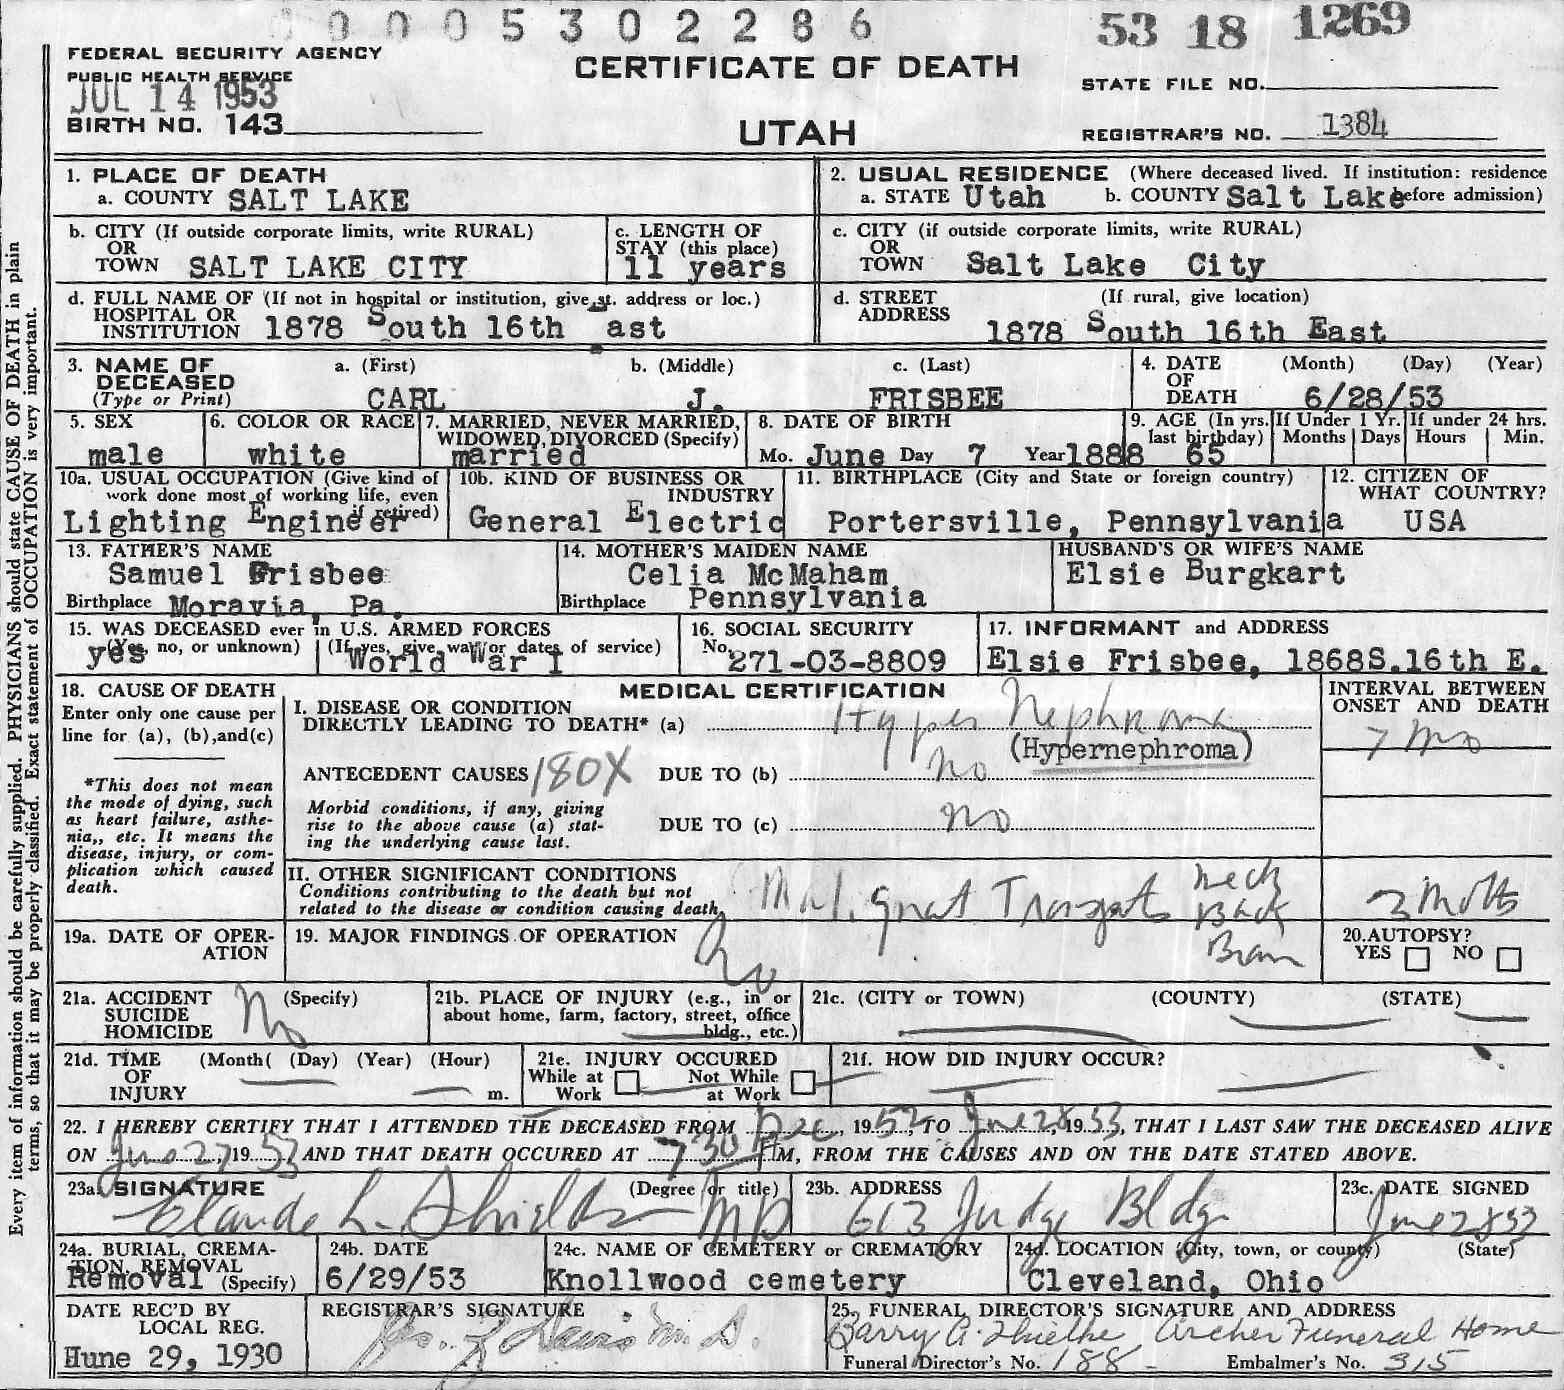 0 0 0 5 3 0 2 2 8 6 53 18 1269
FEDERAL SECURITY AGENCY
PUBLIC HEALTH SERVICE
JUL 14 1953
BIRTH NO. 143
CERTIFICATE OF DEATH
UTAH
STATE FILE NO.
REGISTRAR'S NO. 1384
Every item of information should be carefully supplied. PHYSICIANS should state CAUSE OF DEATH in plain
terms, so that it may be properly classified. Exact statement of OCCUPATION is very important.
1. PLACE OF DEATH
a. COUNTY SALT LAKE
2. USUAL RESIDENCE (Where deceased lived. If institution: residence
a. STATE Utah b. COUNTY Salt Lake before admission)
b. CITY (If outside corporate limits, write RURAL)
OR
TOWN SALT LAKE CITY
c. LENGTH OF
STAY (this place)
11 years
c. CITY (if outside corporate limits, write RURAL)
OR
TOWN Salt Lake City
d. FULL NAME OF (If not in hospital or institution, give st. address or loc.)
HOSPITAL OR
INSTITUTION 1878 South 16th ast
d. STREET (If rural, give location)
ADDRESS
1878 South 16th East
3. NAME OF a. (First) b. (Middle) c. (Last)
DECEASED
(Type or Print) CARL J. FRISBEE
4. DATE (Month) (Day) (Year)
OF
DEATH 6/28/53
5. SEX
male
6. COLOR OR RACE
white
7. MARRIED, NEVER MARRIED,
WIDOWED, DIVORCED (Specify)
married
8. DATE OF BIRTH
Mo. June Day 7 Year 1888
9. AGE (In yrs.
last birthday)
65
If Under 1 Yr.
Months Days
If under 24 hrs.
Hours Min.
10a. USUAL OCCUPATION (Give kind of
work done most of working life, even
if retired)
Lighting Engineer
10b. KIND OF BUSINESS OR
INDUSTRY
General Electric
11. BIRTHPLACE (City and State or foreign country)
Portersville, Pennsylvania
12. CITIZEN OF
WHAT COUNTRY?
USA
13. FATHER'S NAME
Samuel Frisbee
Birthplace Moravia, Pa.
14. MOTHER'S MAIDEN NAME
Celia McMaham
Birthplace Pennsylvania
HUSBAND'S OR WIFE'S NAME
Elsie Burgkart
15. WAS DECEASED ever in U.S. ARMED FORCES
(Yes, no, or unknown) (If yes, give war or dates of service)
yes World War I
16. SOCIAL SECURITY
No. 271-03-8809
17. INFORMANT and ADDRESS
Elsie Frisbee, 1868S.16th E.
18. CAUSE OF DEATH
Enter only one cause per
line for (a), (b),and(c)
*This does not mean
the mode of dying, such
as heart failure, asthe-
nia,, etc. It means the
disease, injury, or com-
plication which caused
death.
MEDICAL CERTIFICATION
I. DISEASE OR CONDITION
DIRECTLY LEADING TO DEATH* (a) Hyper Nephroma
(Hypernephroma)
ANTECEDENT CAUSES 180X DUE TO (b) No
Morbid conditions, if any, giving
rise to the above cause (a) stat-
ing the underlying cause last.
DUE TO (c) no
INTERVAL BETWEEN
ONSET AND DEATH
7 mo
II. OTHER SIGNIFICANT CONDITIONS
Conditions contributing to the death but not
related to the disease or condition causing death
Neck
Back
Brain
19a. DATE OF OPER-
ATION
19. MAJOR FINDINGS OF OPERATION No
20. AUTOPSY?
YES NO
21a. ACCIDENT (Specify)
SUICIDE
HOMICIDE No
21b. PLACE OF INJURY (e.g., in or
about home, farm, factory, street, office
bldg., etc.)
21c. (CITY or TOWN) (COUNTY) (STATE)
21d. TIME (Month( (Day) (Year) (Hour)
OF
INJURY m.
21e. INJURY OCCURED
While at Not While
Work at Work
21f. HOW DID INJURY OCCUR?
22. I HEREBY CERTIFY THAT I ATTENDED THE DECEASED FROM Dec, 1952, TO June 28, 1953, THAT I LAST SAW THE DECEASED ALIVE
ON June 27, 1953 AND THAT DEATH OCCURED AT 7 30 PM, FROM THE CAUSES AND ON THE DATE STATED ABOVE.
23a. SIGNATURE (Degree or title)
Claude L. Shields MD
23b. ADDRESS
613 Judge Bldg
23c. DATE SIGNED
June 28 53
24a. BURIAL, CREMA-
TION, REMOVAL
Removal (Specify)
24b. DATE
6/29/53
24c. NAME OF CEMETERY or CREMATORY
Knollwood cemetery
24d. LOCATION (City, town, or county) (State)
Cleveland, Ohio
DATE REC'D BY
LOCAL REG.
June 29, 1930
REGISTRAR'S SIGNATURE
M. D.
25. FUNERAL DIRECTOR'S SIGNATURE AND ADDRESS
Barry A. Thielke Archer Funeral Home
Funeral Director's No. 188 Embalmer's No. 315